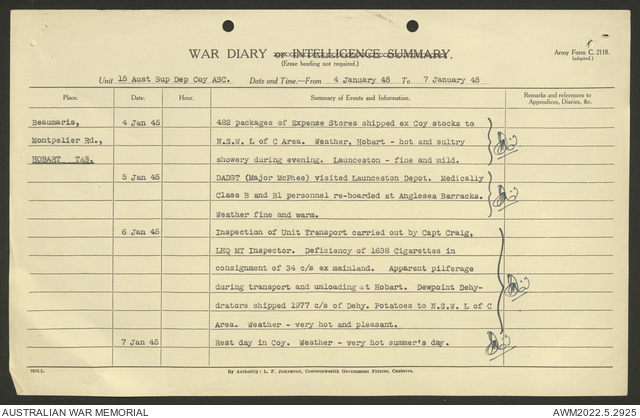 WAR DIARY or INTELLIGENCE SUMMARY.
(Erase heading not required.)
Army Form C. 2118.
(adapted.)
Unit 15 Aust Sup Dep Coy ASC. Date and Time.—From 4 January 45 To 7 January 45
Place. Date. Hour. Summary of Events and Information. Remarks and references to Appendices, Diaries, &c.
Beaumaris, 4 Jan 45 482 packages of Expense Stores shipped ex Coy stocks to
Montpelier Rd., N.S.W. L of C Area. Weather, Hobart - hot and sultry
HOBART TAS. showery during evening. Launceston - fine and mild.
5 Jan 45 DADST (Major McPhee) visited Launceston Depot. Medically
Class B and B1 personnel re-boarded at Anglesea Barracks.
Weather fine and warm.
6 Jan 45 Inspection of Unit Transport carried out by Capt Craig,
LHQ MT Inspector. Deficiency of 1638 Cigarettes in
consignment of 34 c/s ex mainland. Apparent pilferage
during transport and unloading at Hobart. Dewpoint Dehy-
drators shipped 1977 c/s of Dehy. Potatoes to N.S.W. L of C
Area. Weather - very hot and pleasant.
7 Jan 45 Rest day in Coy. Weather - very hot summer's day.
By Authority: L. F. Johnston, Commonwealth Government Printer, Canberra.
AUSTRALIAN WAR MEMORIAL
AWM2022.5.2925